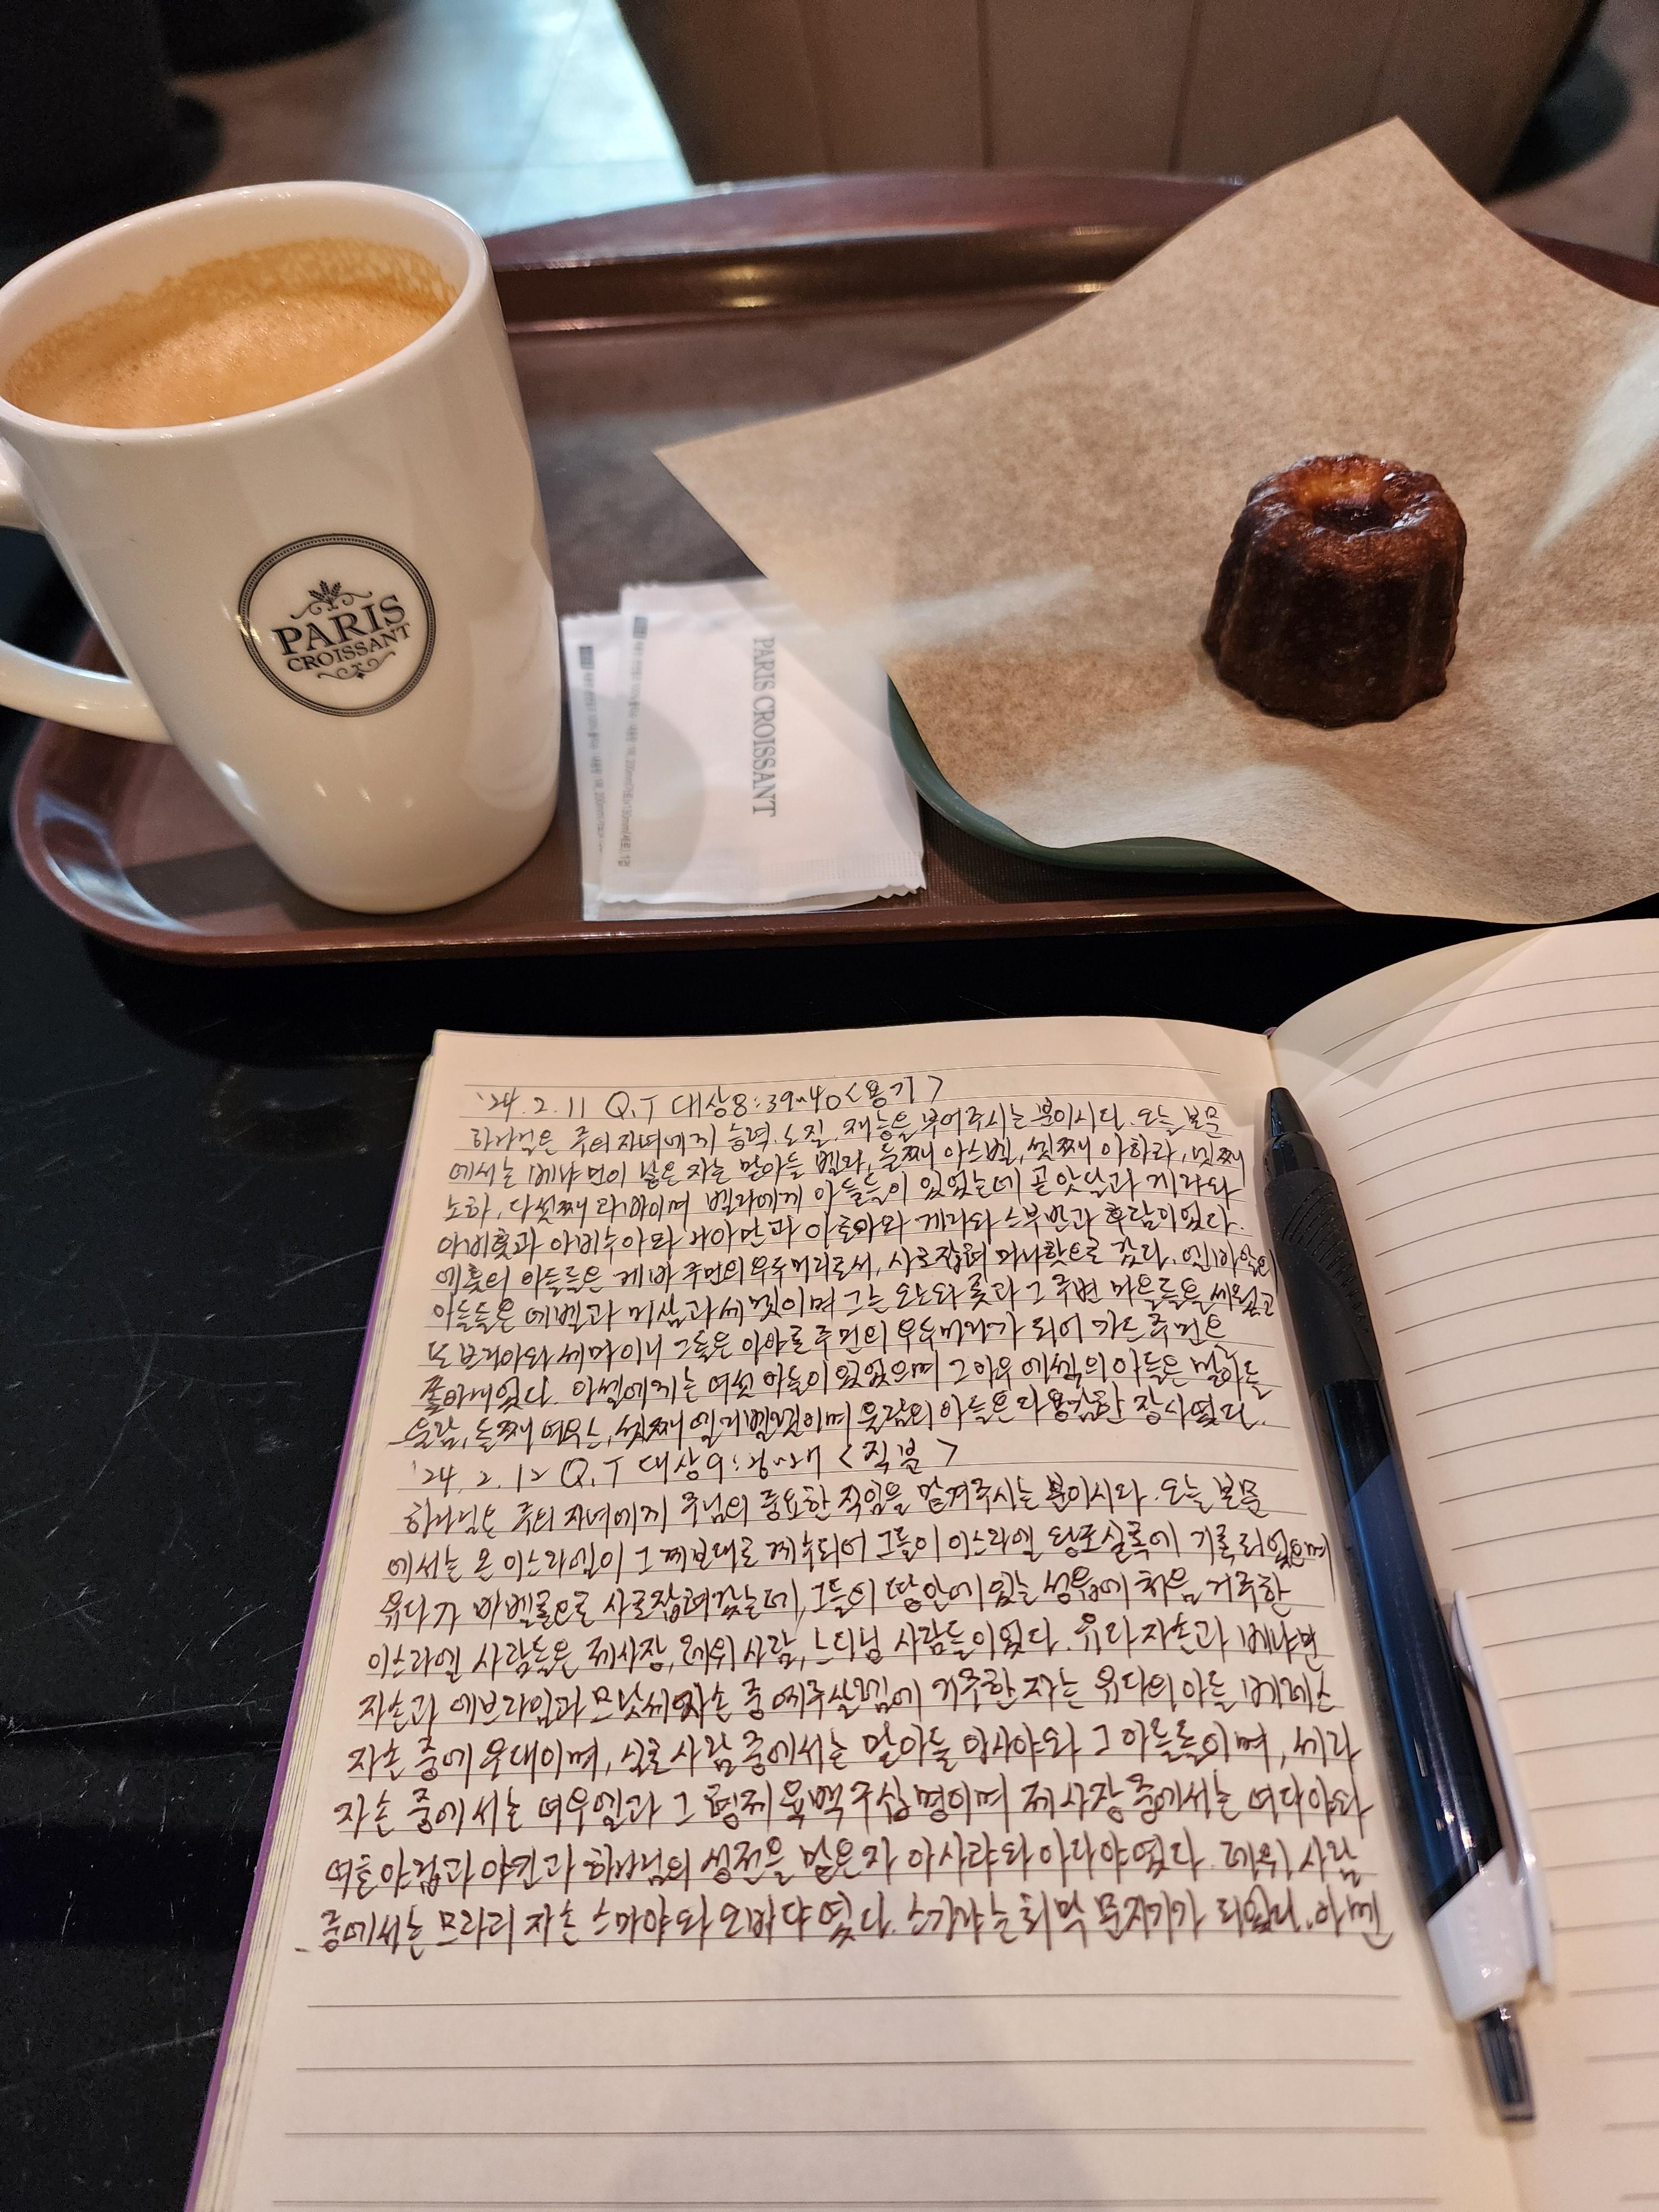 PARIS
CROISSANT
PARIS CROISSANT
'24. 2. 11 Q.T 대상8:39~40 <용기>
하나님은 주의 자녀에게 능력. 소질. 재능을 부여주시는 분이시다. 오늘 본문
에서는 베냐민이 낳은 자는 맏아들 벨라, 둘째 아스벨, 셋째 아하라, 넷째
노하, 다섯째 라바이며 벨라에게 아들들이 있었는데 곧 앗달과 게라와
아비훗과 아비수아와 나아만과 아호아와 게라와 스부반과 후람이었다.
에훗의 아들들은 게바 주민의 우두머리로서, 사로잡혀 마나핫으로 갔다. 엘바알의
아들들은 에벨과 미삼과 세멧이며 그는 오노와 롯과 그 주변 마을들을 세웠고
또 브리아와 세마이니 그들은 아얄론 주민의 우두머리가 되어 가드 주민을
쫓아내었다. 아셀에게는 여섯 아들이 있었으며 그 아우 에섹의 아들은 맏아들
울람, 둘째 여우스, 셋째 엘리벨렛이며 울람의 아들은 다 용감한 장사였다.
'24. 2. 12 Q.T 대상9:26~27 <직분>
하나님은 주의 자녀에게 주님의 중요한 직임을 맡겨주시는 분이시다. 오늘 본문
에서는 온 이스라엘이 그 계보대로 계수되어 그들이 이스라엘 왕조실록에 기록되었으며
유다가 바벨론으로 사로잡혀갔는데, 그들의 땅 안에 있는 성읍에 처음 거주한
이스라엘 사람들은 제사장, 레위 사람, 느디님 사람들이었다. 유다 자손과 베냐민
자손과 에브라임과 므낫세 자손 중 예루살렘에 거주한 자는 유다의 아들 베레스
자손 중에 우대이며, 실로 사람 중에서는 맏아들 아사야와 그 아들들이며, 세라
자손 중에서는 여우엘과 그 형제 육백 구십 명이며 제사장 중에서는 여다야와
여호야립과 야긴과 하나님의 성전을 맡은 자 아사랴와 아다야였다. 레위 사람
중에서는 므라리 자손 스마야와 오바댜였다. 스가랴는 회막 문지기가 되었다. 아멘